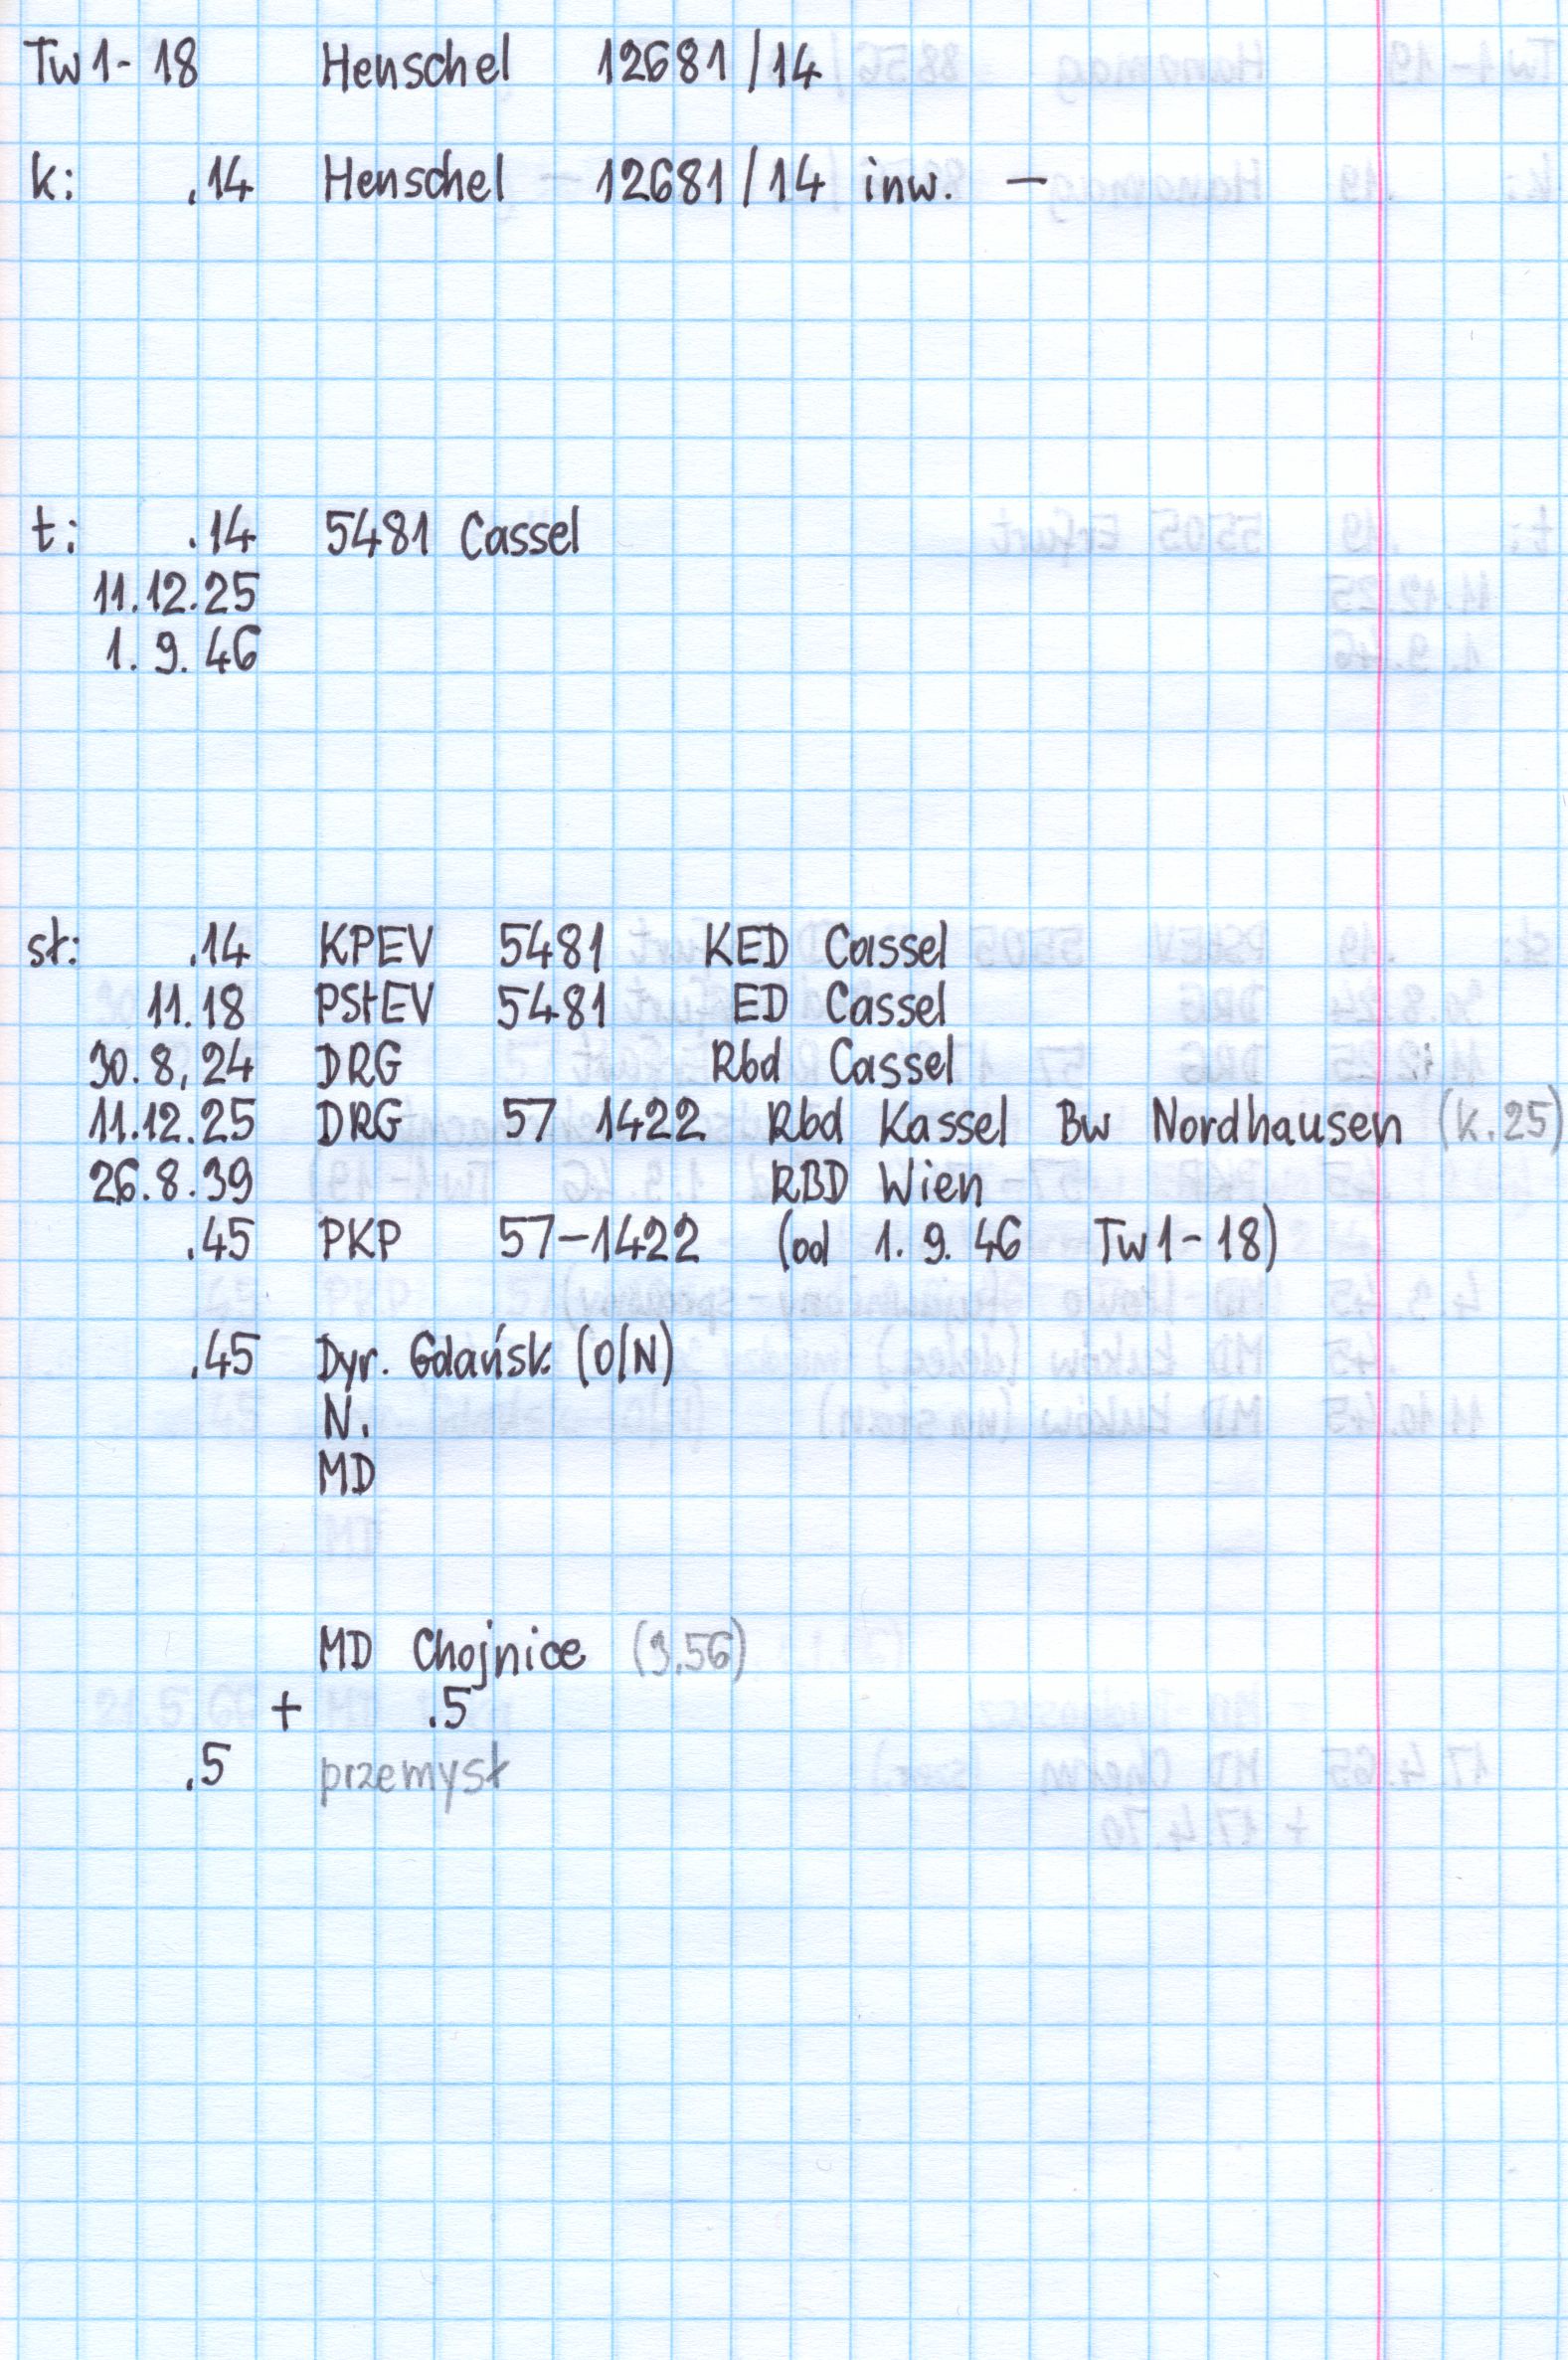 Tw1-18 Henschel 12681/14
k: .14 Henschel 12681/14 inw. –
t: .14 5481 Cassel
11.12.25
1. 9. 46
st: .14 KPEV 5481 KED Cassel
11.18 PStEV 5481 ED Cassel
30.8,24 DRG Rbd Cassel
11.12.25 DRG 57 1422 Rbd Kassel Bw Nordhausen (k.25)
26.8.39 RBD Wien
.45 PKP 57-1422 (od 1. 9. 46 Tw1-18)
.45 Dyr. Gdańsk (O/N)
N.
MD
MD Chojnice (3.56)
+ .5
.5 przemysł